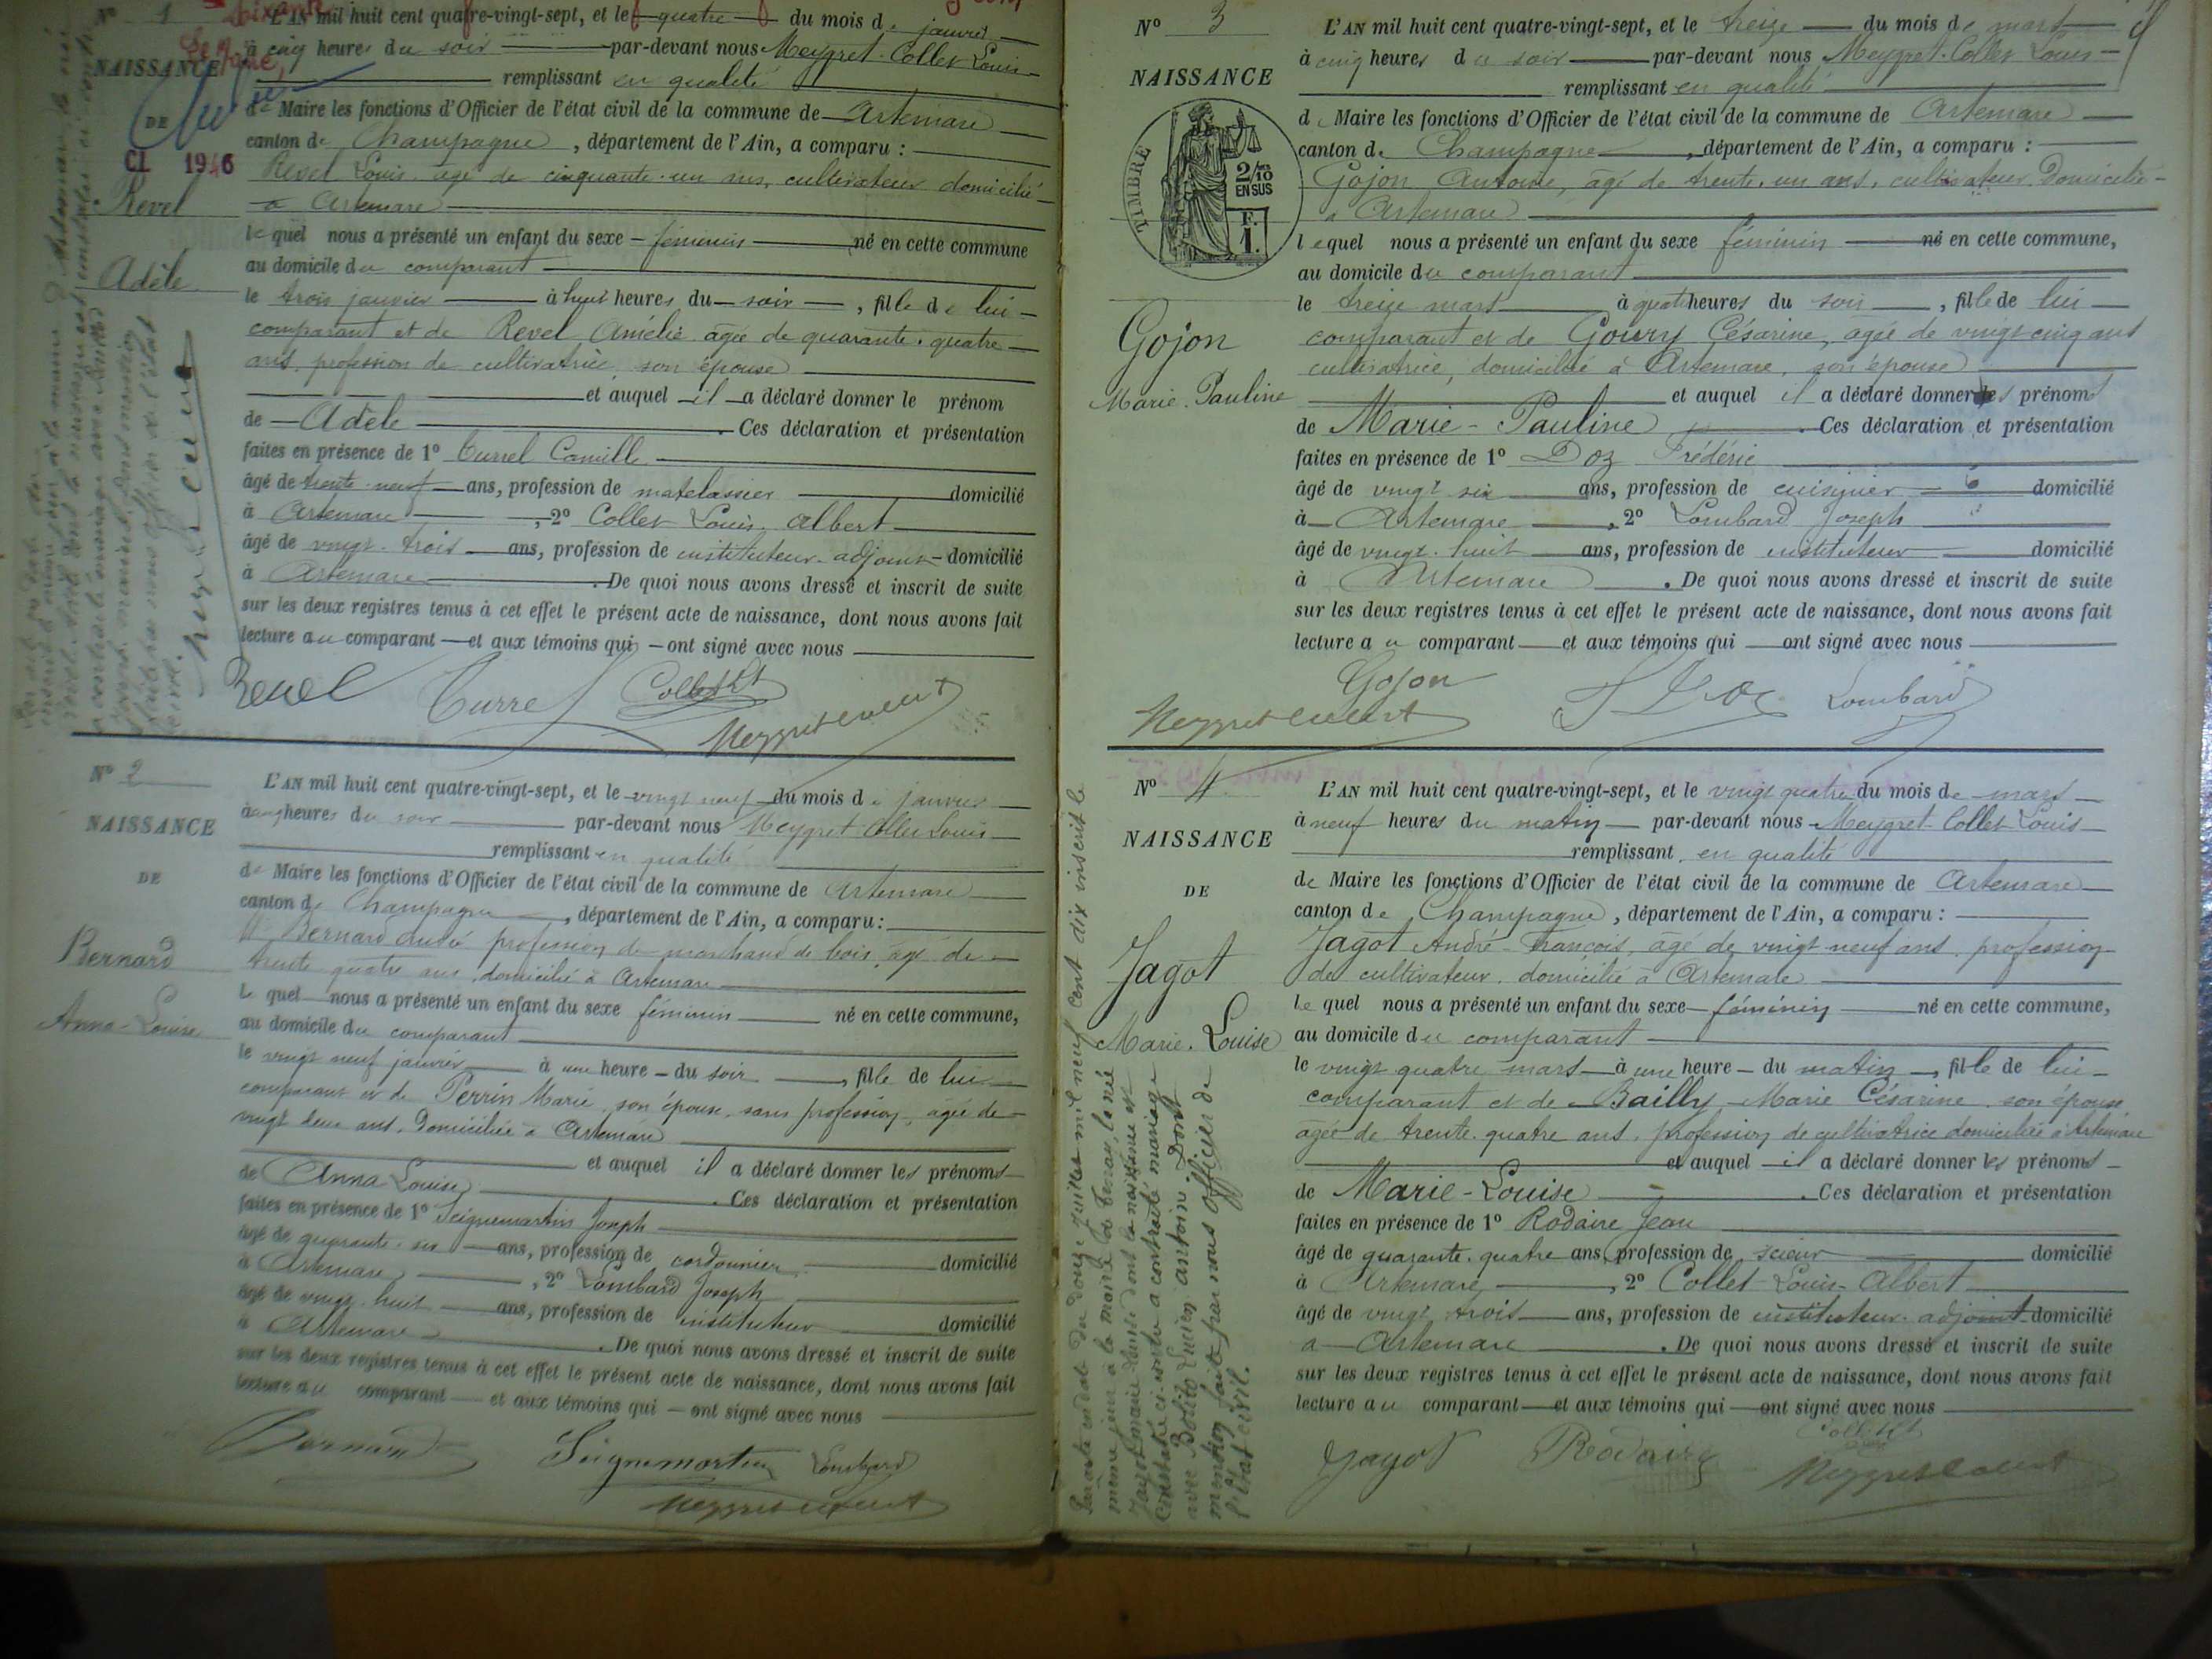 Nº 1
L'AN mil huit cent quatre-vingt-sept, et le quatre du mois de janvier
à cinq heures du soir par-devant nous Meygret-Collet Louis
NAISSANCE
remplissant en qualité
de Maire les fonctions d'Officier de l'état civil de la commune de Artemare
DE
canton de Champagne, département de l'Ain, a comparu :
CI 1946
Revel Louis, âgé de cinquante-un ans, cultivateur domicilié
Revel
à Artemare
lequel nous a présenté un enfant du sexe féminin né en cette commune
au domicile du comparant
Adèle
le trois janvier à huit heures du soir, fille de lui
comparant et de Revel Amélie âgée de quarante-quatre
ans, profession de cultivatrice, son épouse
et auquel il a déclaré donner le prénom
de Adèle. Ces déclaration et présentation
faites en présence de 1º Turrel Camille
âgé de trente-neuf ans, profession de matelassier domicilié
à Artemare, 2º Collet Louis Albert
âgé de vingt-trois ans, profession de instituteur-adjoint domicilié
à Artemare. De quoi nous avons dressé et inscrit de suite
sur les deux registres tenus à cet effet le présent acte de naissance, dont nous avons fait
lecture au comparant et aux témoins qui ont signé avec nous
Revel Turrel Collet Meygret Collet
Nº 2
L'AN mil huit cent quatre-vingt-sept, et le vingt neuf du mois de janvier
à cinq heures du soir par-devant nous Meygret-Collet Louis
NAISSANCE
remplissant en qualité
de Maire les fonctions d'Officier de l'état civil de la commune de Artemare
DE
canton de Champagne, département de l'Ain, a comparu :
Bernard André profession de marchand de bois, âgé de
Bernard
trente quatre ans, domicilié à Artemare
lequel nous a présenté un enfant du sexe féminin né en cette commune,
Anna-Louise
au domicile du comparant
le vingt neuf janvier à une heure du soir, fille de lui
comparant et de Perrin Marie, son épouse, sans profession, âgée de
vingt deux ans, domiciliée à Artemare
et auquel il a déclaré donner les prénoms
de Anna Louise. Ces déclaration et présentation
faites en présence de 1º Seignemartin Joseph
âgé de quarante-six ans, profession de cordonnier domicilié
à Artemare, 2º Lombard Joseph
âgé de vingt-huit ans, profession de instituteur domicilié
à Artemare. De quoi nous avons dressé et inscrit de suite
sur les deux registres tenus à cet effet le présent acte de naissance, dont nous avons fait
lecture au comparant et aux témoins qui ont signé avec nous
Bernard Seignemartin Lombard
Meygret Collet
Nº 3
L'AN mil huit cent quatre-vingt-sept, et le treize du mois de mars
à cinq heures du soir par-devant nous Meygret-Collet Louis
NAISSANCE
remplissant en qualité
de Maire les fonctions d'Officier de l'état civil de la commune de Artemare
canton de Champagne, département de l'Ain, a comparu :
TIMBRE
2/10 EN SUS
F. 1.
Gojon Antoine, âgé de trente-un ans, cultivateur, domicilié
à Artemare
lequel nous a présenté un enfant du sexe féminin né en cette commune,
au domicile du comparant
le treize mars à quatre heures du soir, fille de lui
Gojon
comparant et de Goury Césarine, âgée de vingt cinq ans
cultivatrice, domiciliée à Artemare, son épouse
Marie-Pauline
et auquel il a déclaré donner les prénoms
de Marie-Pauline. Ces déclaration et présentation
faites en présence de 1º Doz Frédéric
âgé de vingt six ans, profession de cuisinier domicilié
à Artemare, 2º Lombard Joseph
âgé de vingt-huit ans, profession de instituteur domicilié
à Artemare. De quoi nous avons dressé et inscrit de suite
sur les deux registres tenus à cet effet le présent acte de naissance, dont nous avons fait
lecture au comparant et aux témoins qui ont signé avec nous
Gojon F Doz Lombard
Meygret Collet
Nº 4
L'AN mil huit cent quatre-vingt-sept, et le vingt quatre du mois de mars
à neuf heures du matin par-devant nous Meygret-Collet Louis
NAISSANCE
remplissant en qualité
de Maire les fonctions d'Officier de l'état civil de la commune de Artemare
DE
canton de Champagne, département de l'Ain, a comparu :
Jagot André-François, âgé de vingt-neuf ans, profession
Jagot
de cultivateur, domicilié à Artemare
lequel nous a présenté un enfant du sexe féminin né en cette commune,
Marie-Louise
au domicile du comparant
le vingt quatre mars à une heure du matin, fille de lui
comparant et de Bailly Marie Césarine, son épouse
âgée de trente-quatre ans, profession de cultivatrice domiciliée à Artemare
et auquel il a déclaré donner les prénoms
de Marie-Louise. Ces déclaration et présentation
faites en présence de 1º Rodaire Jean
âgé de quarante-quatre ans, profession de scieur domicilié
à Artemare, 2º Collet Louis-Albert
âgé de vingt trois ans, profession de instituteur-adjoint domicilié
à Artemare. De quoi nous avons dressé et inscrit de suite
sur les deux registres tenus à cet effet le présent acte de naissance, dont nous avons fait
lecture au comparant et aux témoins qui ont signé avec nous
Jagot Rodaire Collet
Meygret Collet
Par acte en date du douze juillet mil neuf cent dix inscrit le
même jour à la mairie de la née
Jagot Marie Louise dont la naissance est
constatée ci-contre a contracté mariage
avec Lucien Antoine. Dont
mention faite par nous officier de
l'état civil.